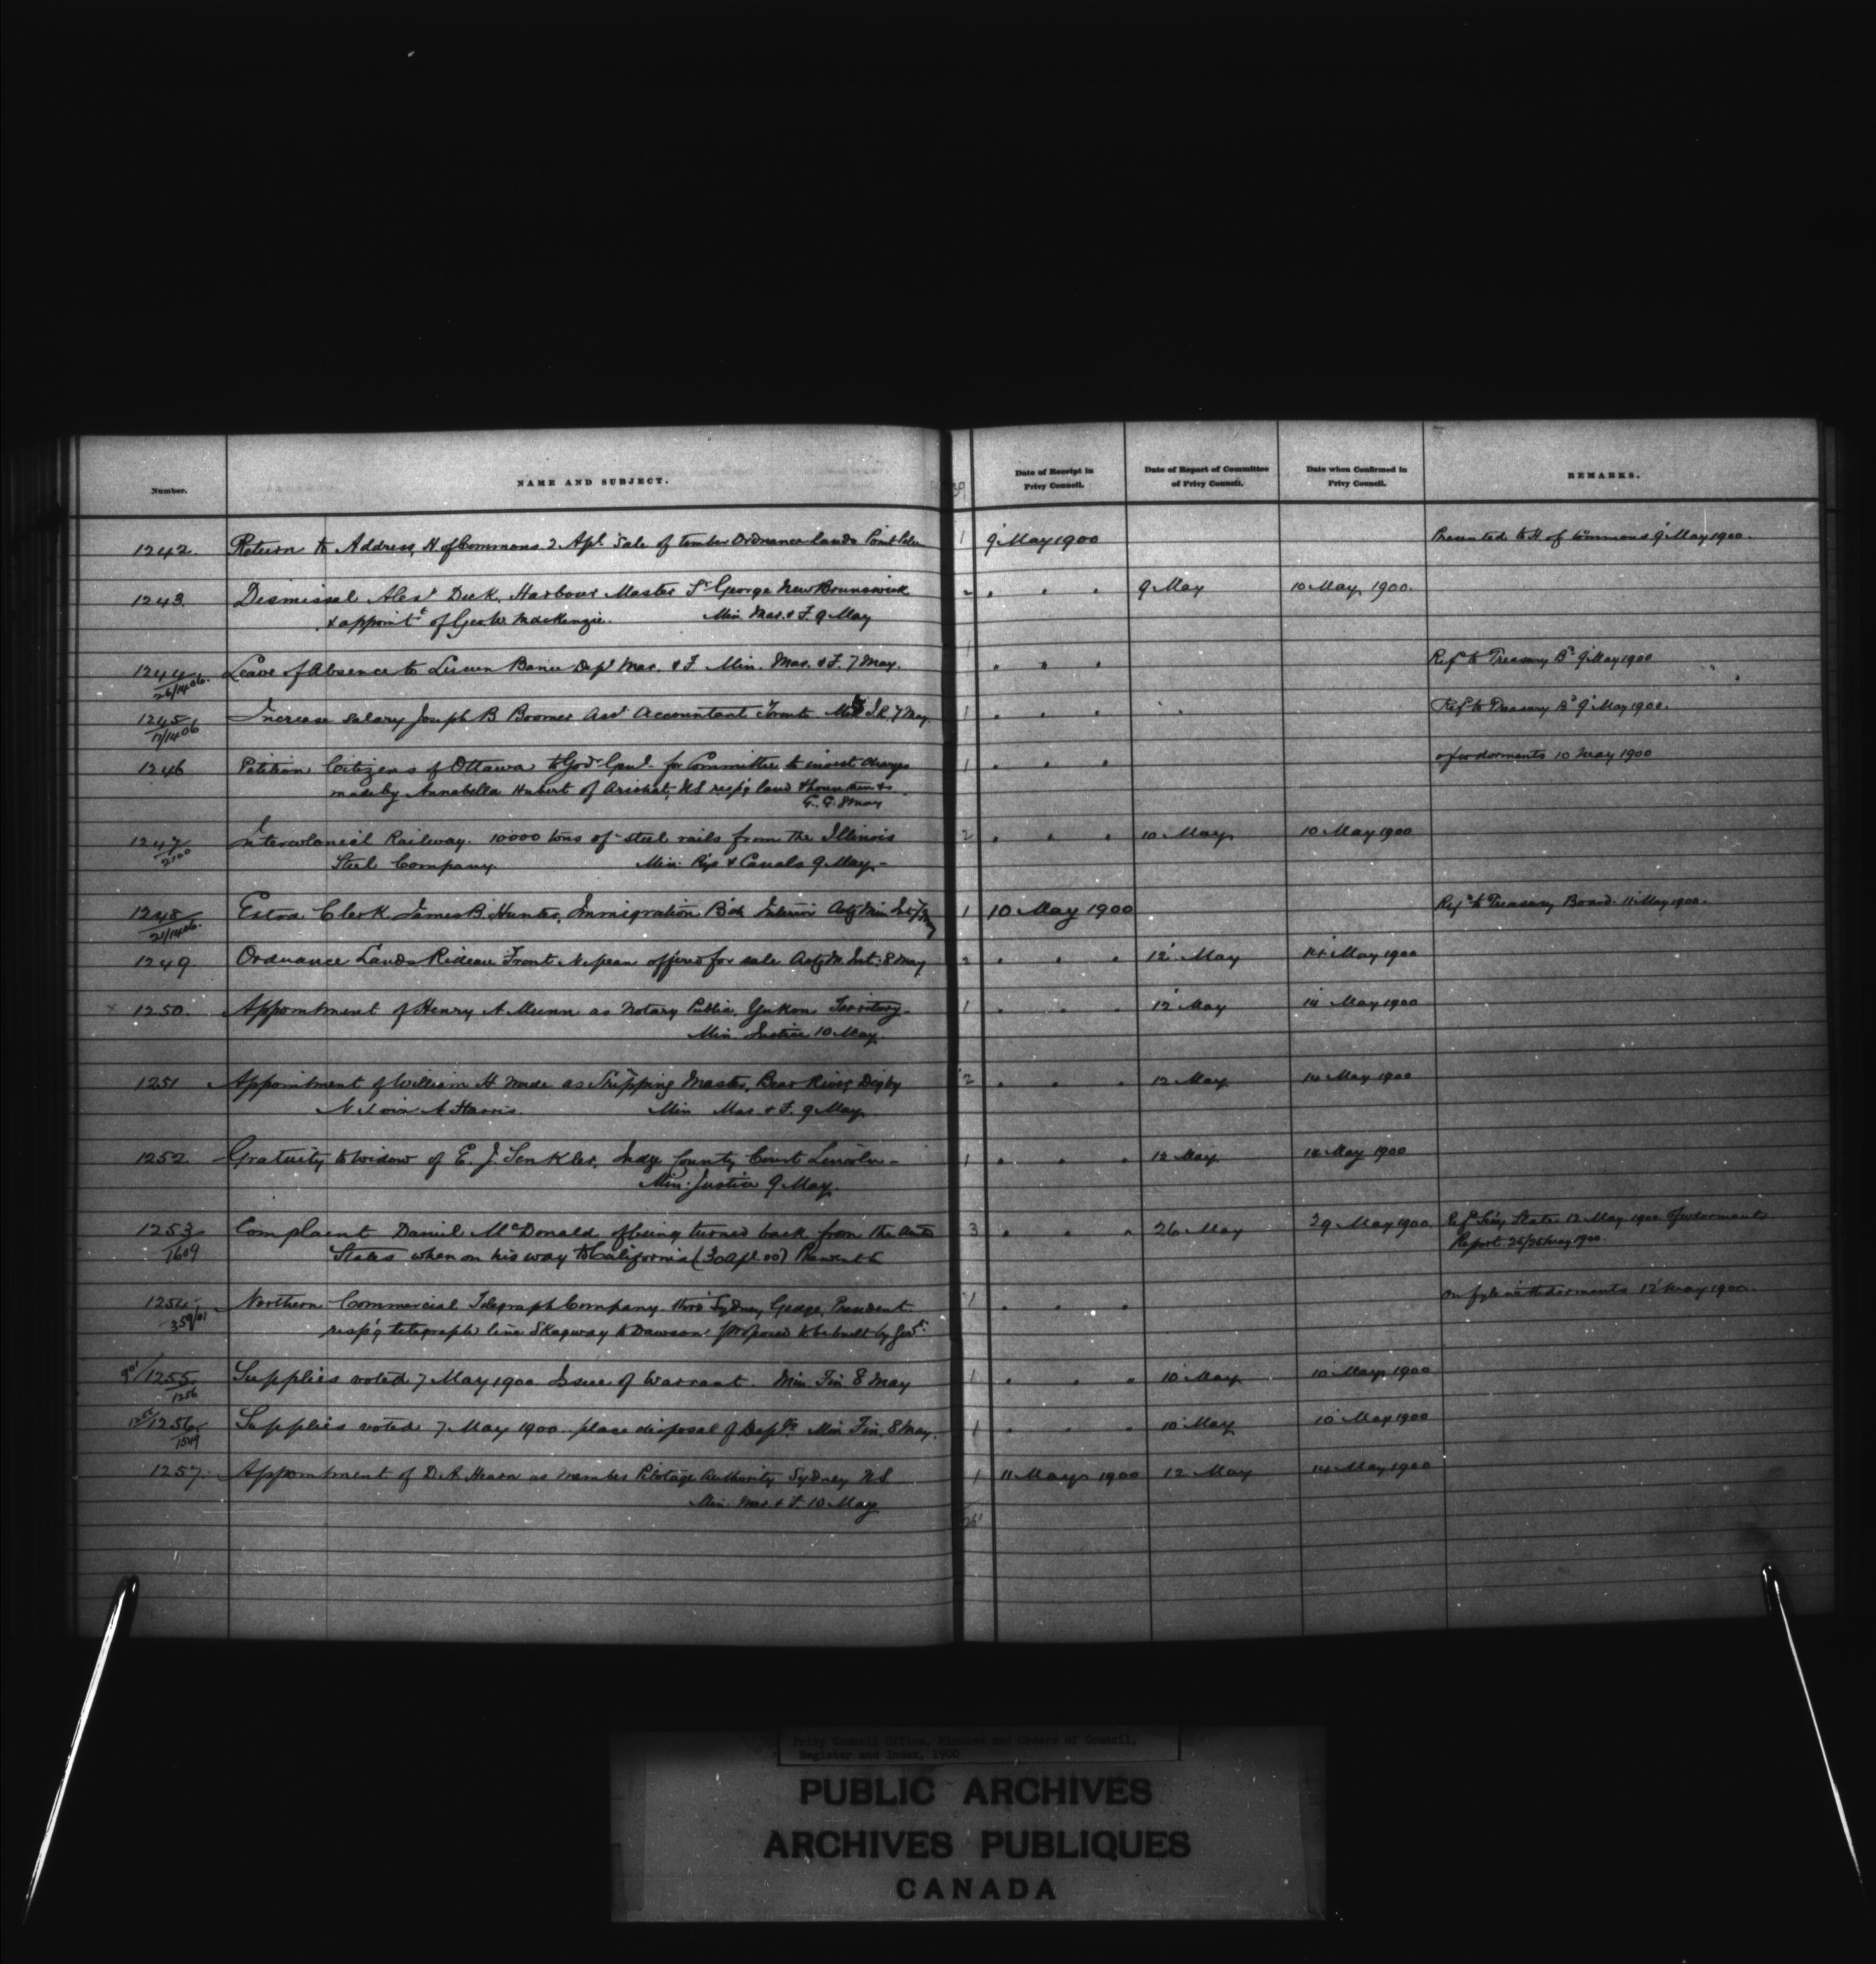 Number. NAME AND SUBJECT. Date of Receipt in Privy Council. Date of Report of Committee of Privy Council. Date when Confirmed in Privy Council. REMARKS.
1242. Return to Address H of Commons 2 Apl. Sale of timber Ordnance lands Point Pelee 1 9 May 1900 Presented to H of Commons 9 May 1900.
1243. Dismissal Alexr Dick, Harbour Master St George New Brunswick 2 " " " 9 May 10 May 1900.
& appointt of Geo W Mackenzie. Min. Mar. & F. 9 May
1244 Leave of Absence to Lucien Dept Mar. & F. Min. Mar. & F. 7 May. 1 " " " Refd to Treasury Bd 9 May 1900
26/1406.
1245 Increase Salary Joseph B Boomer Asst Accountant I.R. 7 May 1 " " " Refd to Treasury Bd 9 May 1900.
17/1406
1246 Petition Citizens of Ottawa to Govr Genl. for Committee to invest charges 1 " " " 10 May 1900
made by Annabella Hubert of Arichat, NS resp'g land
G.G. 8 May
1247 Intercolonial Railway. 10000 tons of steel rails from the Illinois 2 " " " 10 May 10 May 1900
2100 Steel Company. Min. Rys & Canals 9 May -
1248 Extra Clerk James B Hunter, Immigration Bch Interior Actg Min Int 1 10 May 1900 Refd to Treasury Board. 11 May 1900.
21/1406.
1249 Ordnance Lands Rideau Front Nepean offered for sale Actg M. Int. 8 May 2 " " " 12 May 14 May 1900
1250. Appointment of Henry A Munn as Notary Public, Yukon Territory - 1 " " " 12 May 14 May 1900
Min. Justice 10 May.
1251 Appointment of William H as Shipping Master, Bear River, Digby 2 " " " 12 May 14 May 1900
N.S. vice A Harris. Min Mar. & F. 9 May.
1252. Gratuity to widow of E. J. Senkler, Judge County Court Lincoln - 1 " " " 12 May 14 May 1900
Min. Justice 9 May.
1253 Complaint Daniel McDonald of being turned back from the United 3 " " " 26 May 29 May 1900 Refd Secy State 12 May 1900
1609 States when on his way to California (30 Apl. 00) Report 25/25 May 1900.
1254 Northern Commercial Telegraph Company. thro' Sydney George, President 1 " " " 12 May 1900.
359/01 resp'g telegraph line Skagway to Dawson proposed to be built by Govt.
1255 Supplies voted 7 May 1900 Issue of Warrant. Min Fin 8 May 1 " " " 10 May 10 May 1900
1256
1256 Supplies voted 7 May 1900. place disposal of Depts. Min Fin 8 May. 1 " " " 10 May 10 May 1900
1549
1257. Appointment of D. A. Hearn as member Pilotage Authority Sydney N.S. 1 11 May 1900 12 May 14 May 1900
Min. Mar. & F. 10 May
Privy Council Office, Minutes and Orders of Council,
Register and Index, 1900
PUBLIC ARCHIVES
ARCHIVES PUBLIQUES
CANADA